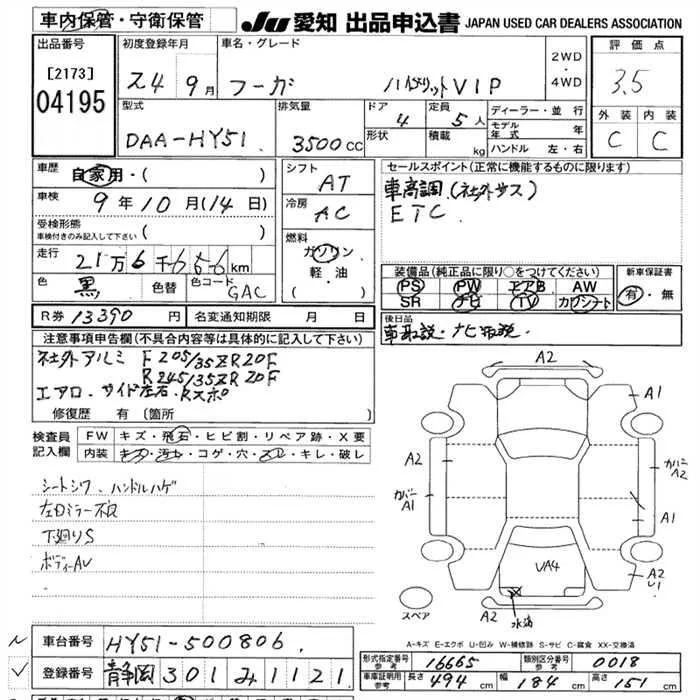 車内保管・守衛保管
JU 愛知 出品申込書 JAPAN USED CAR DEALERS ASSOCIATION
出品番号 初度登録年月 車名・グレード 評価点
[2173]
04195
9月 フーガ VIP 2WD・4WD 3.5
型式 排気量 ドア 定員 ディーラー・並行 外装 内装
DAA-HY51 3500cc 4 5人 モデル年式 年 C C
形状 積載 kg ハンドル 左・右
車歴 自家用・( ) シフト AT
セールスポイント(正常に機能するものに限ります)
車検 9年10月(14日) 冷房 AC
車高調(社外サス)
ETC
受検形態 車検付きのみ記入して下さい ( )
燃料 ガソリン 軽・油
走行 21万6千656km
装備品(純正品に限り○をつけてください) 新車保証書
PS PW エアB AW 有・無
SR ナビ TV カワシート
色 黒 色替 色コード GAC
R券 13390円 名変通知期限 月 日
後日品
注意事項申告欄(不具合内容等は具体的に記入して下さい)
社外アルミ F 205/35ZR20F
R 245/35ZR20F
エアロ・サイド左右・Rスポ
修復歴 有(箇所 )
検査員記入欄 FW キズ・飛石・ヒビ割・リペア跡・X要
内装 キズ・汚レ・コゲ・穴・スレ・キレ・破レ
シートシワ・ハンドルハゲ
左Dミラー不良
下廻りS
ボディーAU
A2
A1
A2
カバーA2
カバーA1
A1
UA4
A2
A2
スペア
A-キズ E-エクボ U-凹み W-補修跡 S-サビ C-腐食 XX-交換済
車台番号 HY51-500806
登録番号 静岡 301 み 1121
形式指定番号 参考 16665 類別区分番号 参考 0018
車庫証明用 参考 長さ 494cm 幅 184cm 高さ 151cm